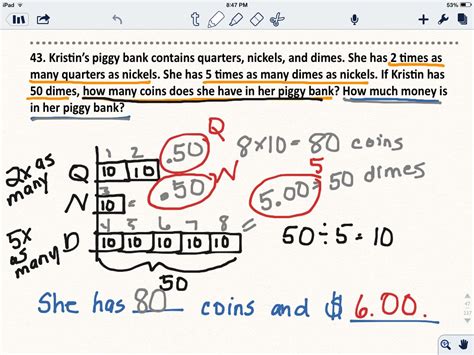 iPad
8:47 PM
53%
43. Kristin's piggy bank contains quarters, nickels, and dimes. She has 2 times as
many quarters as nickels. She has 5 times as many dimes as nickels. If Kristin has
50 dimes, how many coins does she have in her piggy bank? How much money is
in her piggy bank?
1 2 .50 Q 8x10=80 coins
2x as many Q 10 10
3 .50 N 5
N 10 = 5.00 = 50 dimes
4 5 6 7 8
5x as many D 10 10 10 10 10 = 50÷5=10
50
She has 80 coins and $ 6.00.
47